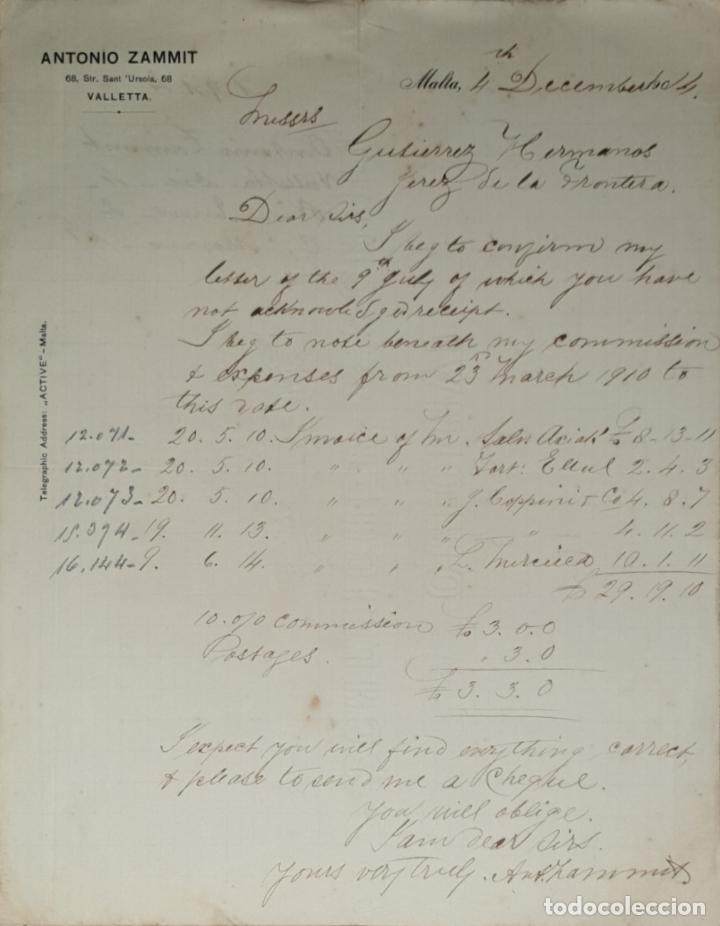 ANTONIO ZAMMIT
68, Str. Sant 'Ursola, 68
VALLETTA.
Telegraphic Address: „ACTIVE" – Malta.
Malta, 4th December 1914.
Messrs
Gutierrez Hermanos
Jerez de la Frontera.
Dear Sirs,
I beg to confirm my
letter of the 9th July of which you have
not acknowledged receipt.
I beg to note beneath my commission
& expenses from 23rd March 1910 to
this date.
12.071- 20. 5. 10. Invoice of Mr. Salv. £ 8-13-11
12.072- 20. 5. 10. " " " Fort: Ellul 2. 4. 3
12.073- 20. 5. 10. " " " J. Coppini & Co 4. 8. 7
15.394- 19. 11. 13. " " " " 4. 11. 2
16.144- 9. 6. 14. " " L. 10. 1. 11
£ 29. 19. 10
10. o/o commission £ 3. 0. 0
Postages. " 3. 0
£ 3. 3. 0
I expect you will find everything correct,
& please to send me a cheque.
You will oblige.
I am dear Sirs.
Yours very truly. Ant. Zammit
todocoleccion
todocoleccion.net